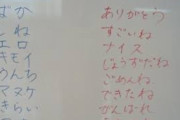 ばか
しね
エロ
キモイ
うんち
マヌケ
きらい
ありがとう
すごいね
ナイス
じょうずだね
ごめんね
できたね
がんばれ